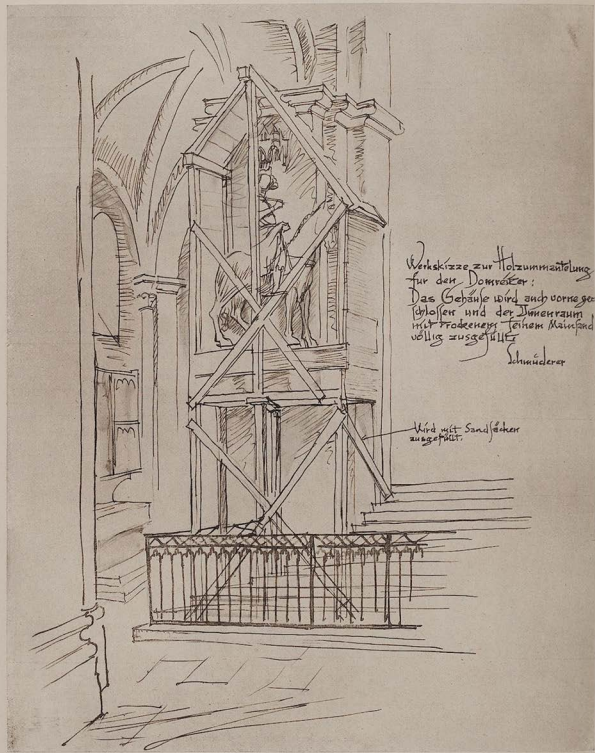 Werkskizze zur Holzummantelung
für den Domreiter:
Das Gehäuse wird auch vorne ge-
schlossen und der Innenraum
mit trockenem feinem Mainsand
völlig ausgefüllt.
Schmuderer
Wird mit Sandsäcken
ausgefüllt.